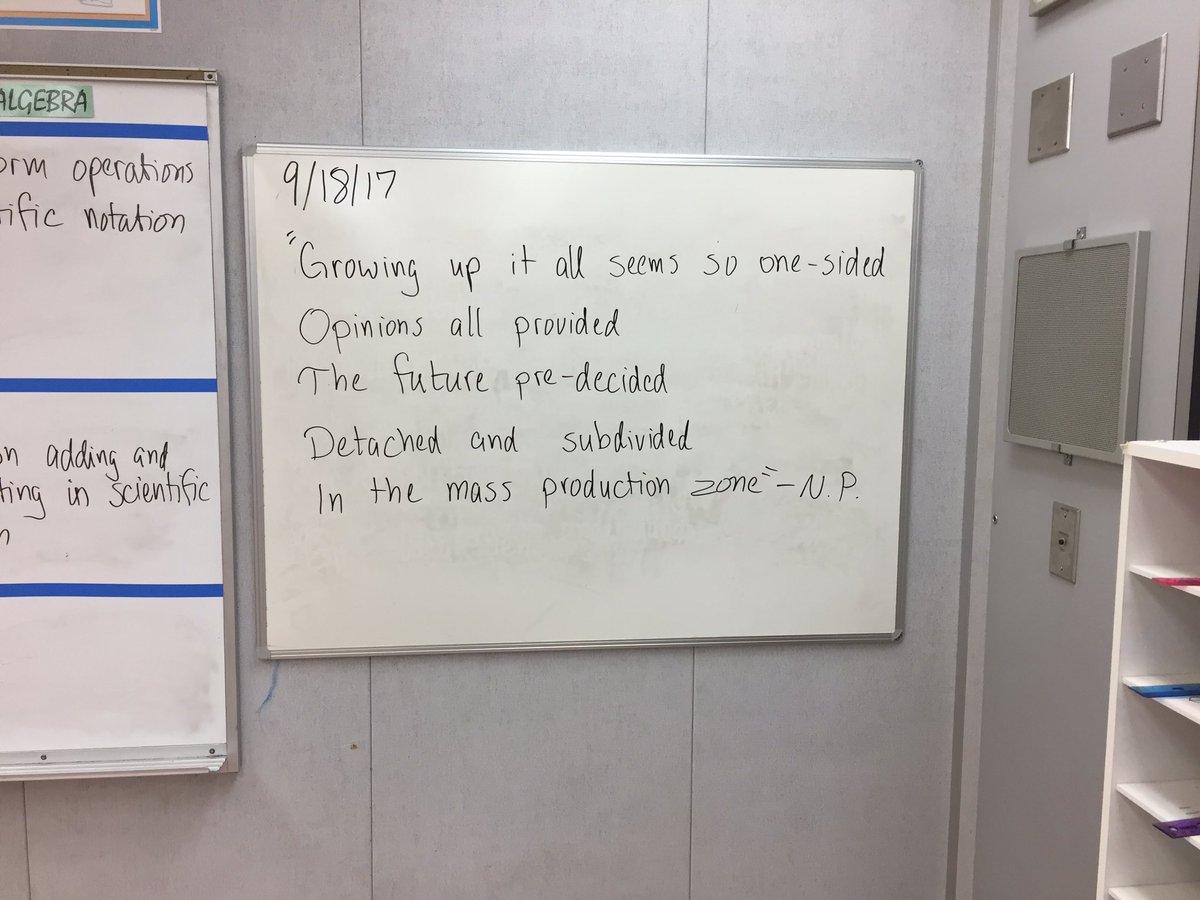 ALGEBRA
operations
notation
adding and
in scientific
9/18/17
"Growing up it all seems so one-sided
Opinions all provided
The future pre-decided
Detached and subdivided
In the mass production zone" - N.P.